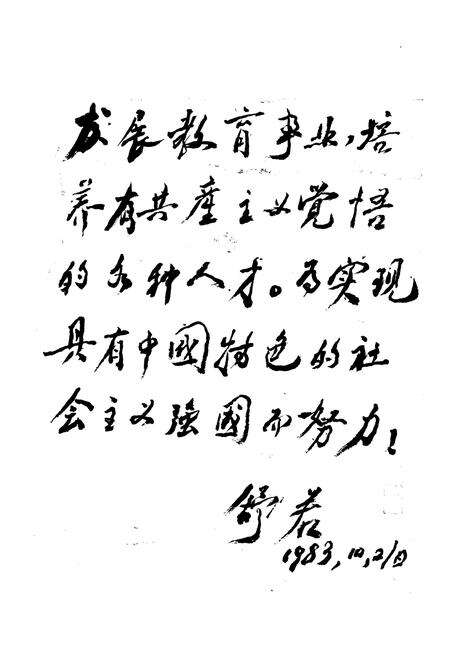 发展教育事业,培
养有共產主义觉悟
的各种人才。为实现
具有中國特色的社
会主义强國而努力!
舒若
1983,10,21日